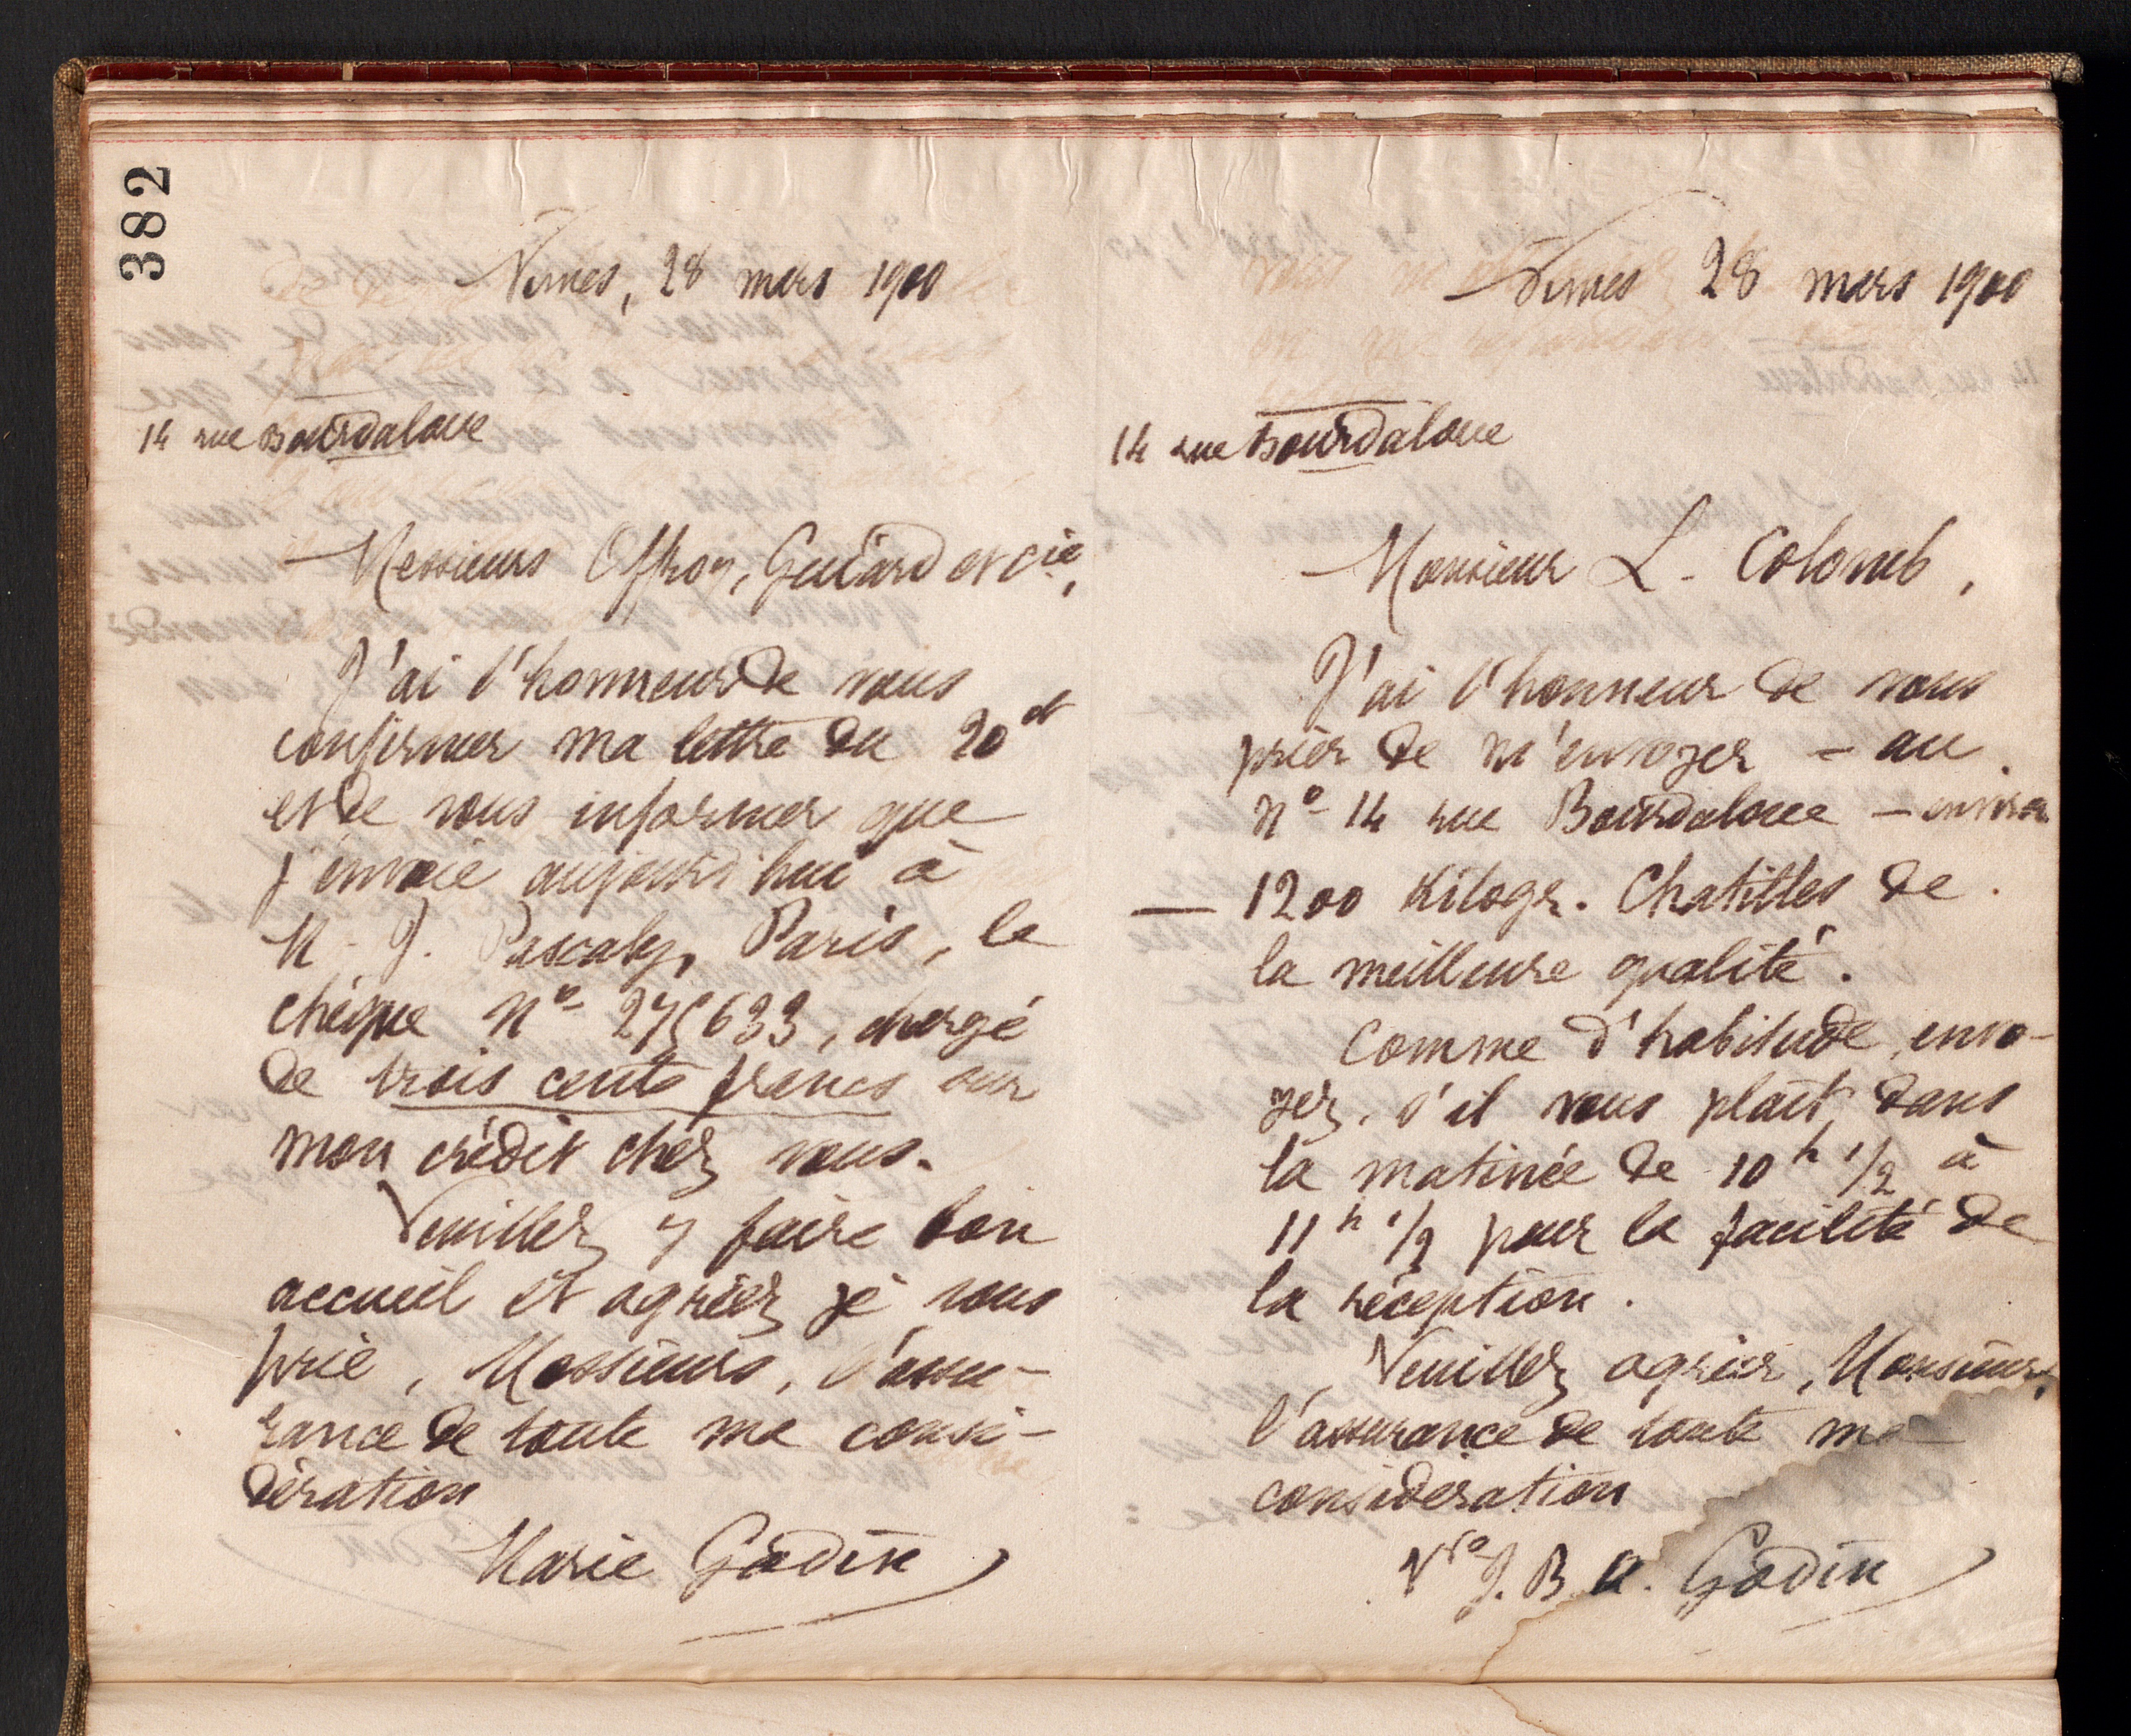 382
Nîmes, 28 mars 1900
14 rue Bourdaloue
Messieurs Offroy, Guiard et Cie,
J'ai l'honneur de vous
confirmer ma lettre du 20 ct
et de vous informer que
j'envoie aujourd'hui à
M. J. Pascaly, Paris, le
chèque N° 275633, chargé
de trois cents francs sur
mon crédit chez vous.
Veuillez y faire bon
accueil et agréer, je vous
prie, Messieurs, l'assu-
rance de toute ma consi-
dération
Marie Godin
Nîmes 28 mars 1900
14 rue Bourdaloue
Monsieur L. Colomb,
J'ai l'honneur de vous
prier de m'envoyer – au
N° 14 rue Bourdaloue – environ
— 1200 Kilogr. Chatilles de
la meilleure qualité.
Comme d'habitude, envo-
yez, s'il vous plaît, dans
la matinée de 10 h 1/2 à
11 h 1/2 pour la facilité de
la réception.
Veuillez agréer, Monsieur,
l'assurance de toute ma
considération
Vve J. B. A. Godin